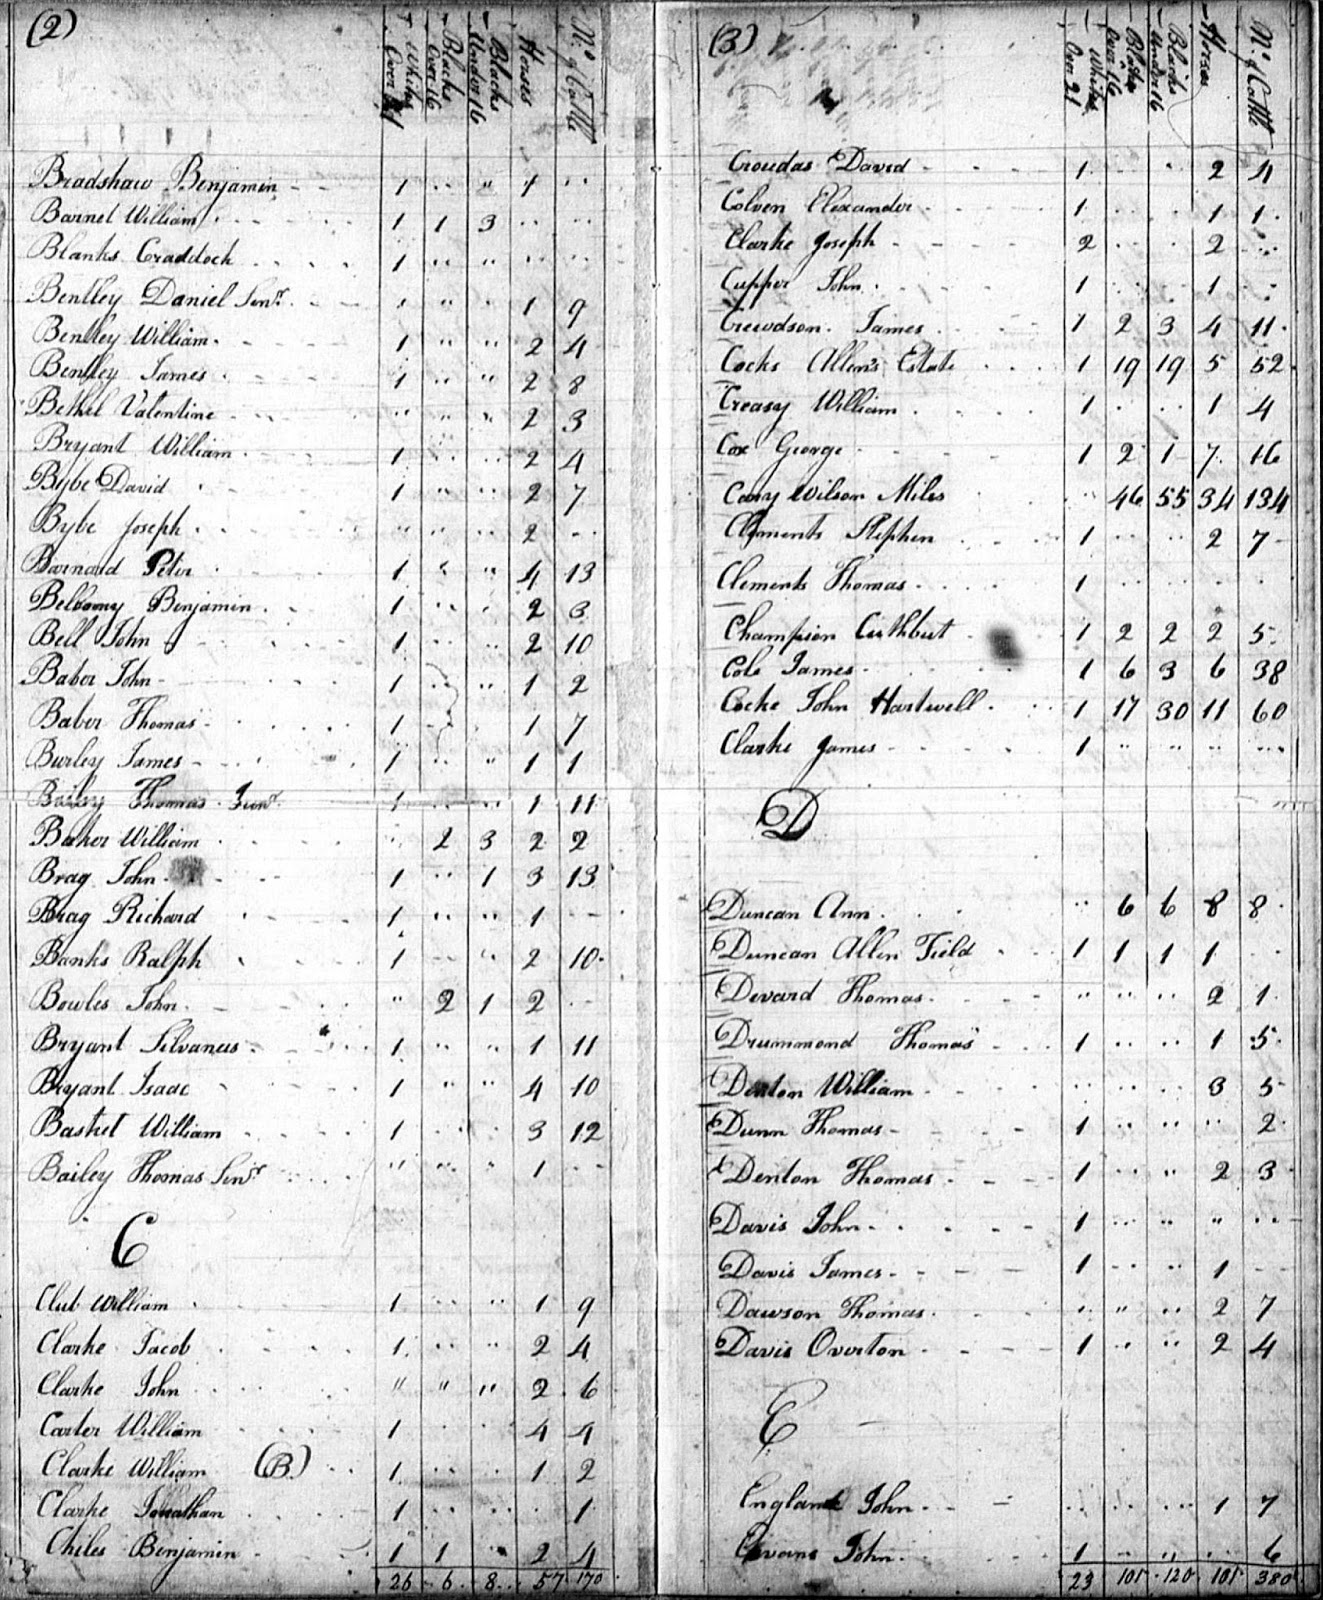 (2) Whites Over 21 Blacks Over 16 Blacks Under 16 Horses No. of Cattle
Bradshaw Benjamin 1 " 1
Barnet William 1 1 3
Blanks Craddock 1 " "
Bentley Daniel Senr. " " 1 9
Bentley William 1 " " 2 4
Bentley James 1 " " 2 8
Bethel Valentine " " " 2 3
Bryant William 1 2 4
Bybe David 1 " " 2 7
Bybe Joseph " " " 2
Barnard Peter 1 " " 4 13
Bellomy Benjamin 1 2 3
Bell John 1 " 2 10
Baber John 1 " 1 2
Baber Thomas 1 1 7
Burley James 1 " 1 1
Bailey Thomas Junr. 1 " 1 11
Baker William 2 3 2 2
Brag John 1 " 1 3 13
Brag Richard 1 " " 1
Banks Ralph 1 " " 2 10
Bowles John " 2 1 2
Bryant Silvanus 1 " " 1 11
Bryant Isaac 1 " " 4 10
Basket William 1 3 12
Bailey Thomas Senr. " " " 1
C
Club William 1 " " 1 9
Clarke Jacob 1 " " 2 4
Clarke John " " " 2 6
Carter William 1 4 4
Clarke William (B) 1 1 2
Clarke Jonathan 1 1
Chiles Benjamin 1 1 2 4
26 6 8 57 170
(3) Whites Over 21 Blacks Over 16 Blacks Under 16 Horses No. of Cattle
Croudas David 1 2 4
Colven Elexander 1 1 1
Clarke Joseph 2 2
Cupper John 1 1
Crewdson James 1 2 3 4 11
Cocks Allen's Estate 1 19 19 5 52
Creasy William 1 1 4
Cox George 1 2 1 7 16
Cary Wilson Miles 46 55 34 134
Clements Stephen 1 2 7
Clements Thomas 1
Champion Cuthbert 1 2 2 2 5
Cole James 1 6 3 6 38
Cocke John Hartwell 1 17 30 11 60
Clarke James 1 " " "
D
Duncan Ann " 6 6 8 8
Duncan Allen Field 1 1 1 1
Devard Thomas " " " 2 1
Drummond Thomas 1 " " 1 5
Denton William 3 5
Dunn Thomas 1 " " " 2
Denton Thomas 1 " " 2 3
Davis John 1 " " "
Davis James 1 1
Dawson Thomas " " " 2 7
Davis Overton 1 " " 2 4
E
England John 1 7
Evans John 1 6
23 101 120 101 380